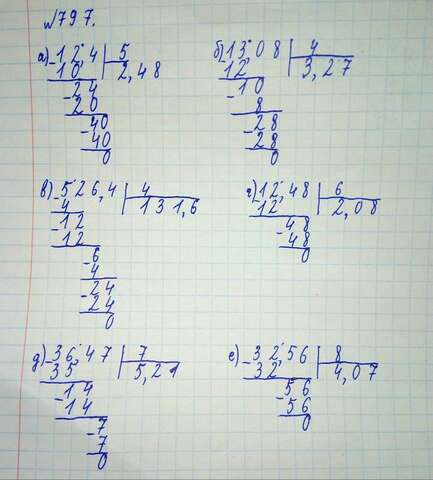 №797.
а) -12,4 | 5
10 | 2,48
-24
20
-40
40
0
б) 13,08 | 4
12 | 3,27
-10
8
-28
28
0
в) -526,4 | 4
4 | 131,6
-12
12
-6
4
-24
24
0
г) -12,48 | 6
12 | 2,08
-48
48
0
д) -36,47 | 7
35 | 5,21
-14
14
-7
7
0
е) -32,56 | 8
32 | 4,07
-56
56
0